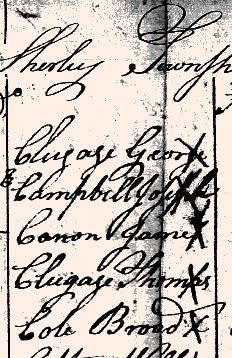 Shirley Townsh
Clugage George
Campbell Joseph
Canon James
Clugage Thomas
Cole Broad